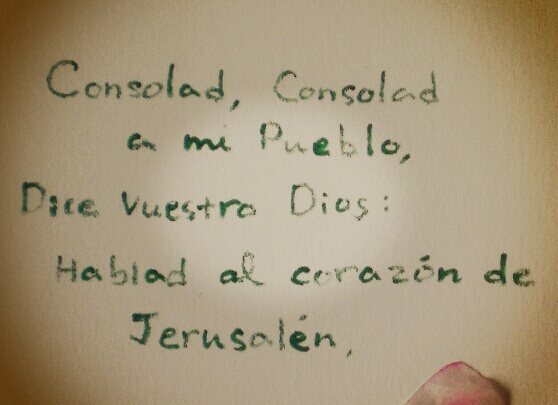 Consolad, Consolad
a mi Pueblo,
Dice Vuestro Dios:
Hablad al corazón de
Jerusalén,